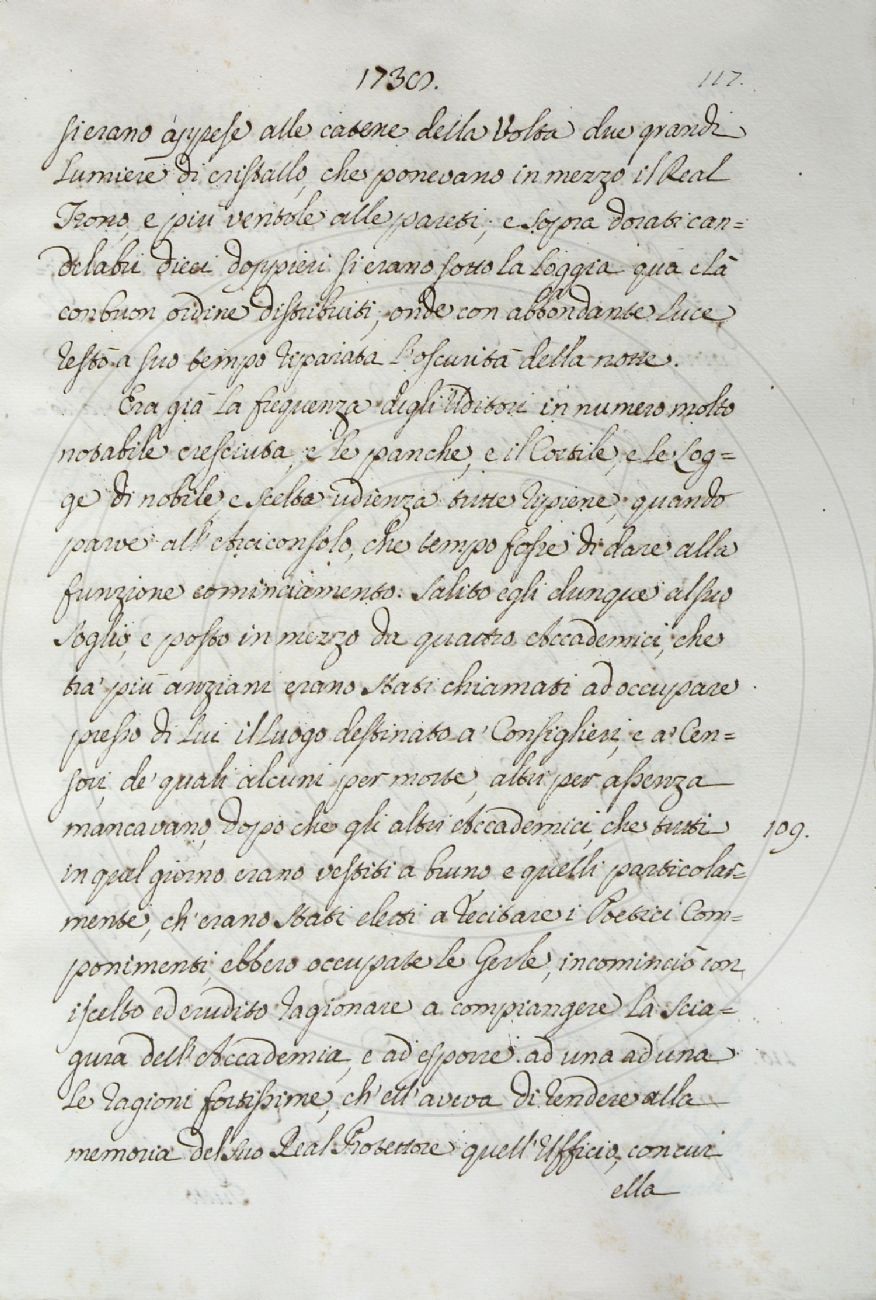 1738. 117.
si erano appese alle catene della Volta due grandi
Lumiere di cristallo, che ponevano in mezzo il Real
Trono, e più ventole alle pareti; e sopra dorati can=
delabri dieci doppieri si erano sotto la Loggia qua e là
con buon ordine distribuiti, onde con abbondante Luce
restò a suo tempo riparata l'oscurità della notte.
Era già La frequenza degli Uditori in numero molto
notabile cresciuta, e le panche, e il Cortile, e Le Log=
ge di nobile, e scelta udienza tutte ripiene, quando
parve all'Arciconsolo, che tempo fosse di dare alla
funzione cominciamento. Salito egli dunque al suo
Soglio, e posto in mezzo da quattro Accademici, che
tra' più anziani erano stati chiamati ad occupare
presso di Lui il Luogo destinato a' Consiglieri, e a' Cen=
sori, de' quali alcuni per morte, altri per assenza
mancavano, dopo che gli altri Accademici, che tutti 109.
in quel giorno erano vestiti a bruno e quelli particolar=
mente, ch'erano stati eletti a recitare i Poetici Com=
ponimenti, ebbero occupate le Gerle, incominciò con
iscelto ed erudito ragionare a compiangere La scia=
gura dell'Accademia, e ad esporre ad una ad una
Le ragioni fortissime, ch'ell'aveva di rendere alla
memoria del suo Real Protettore quell'Ufficio, con cui
ella